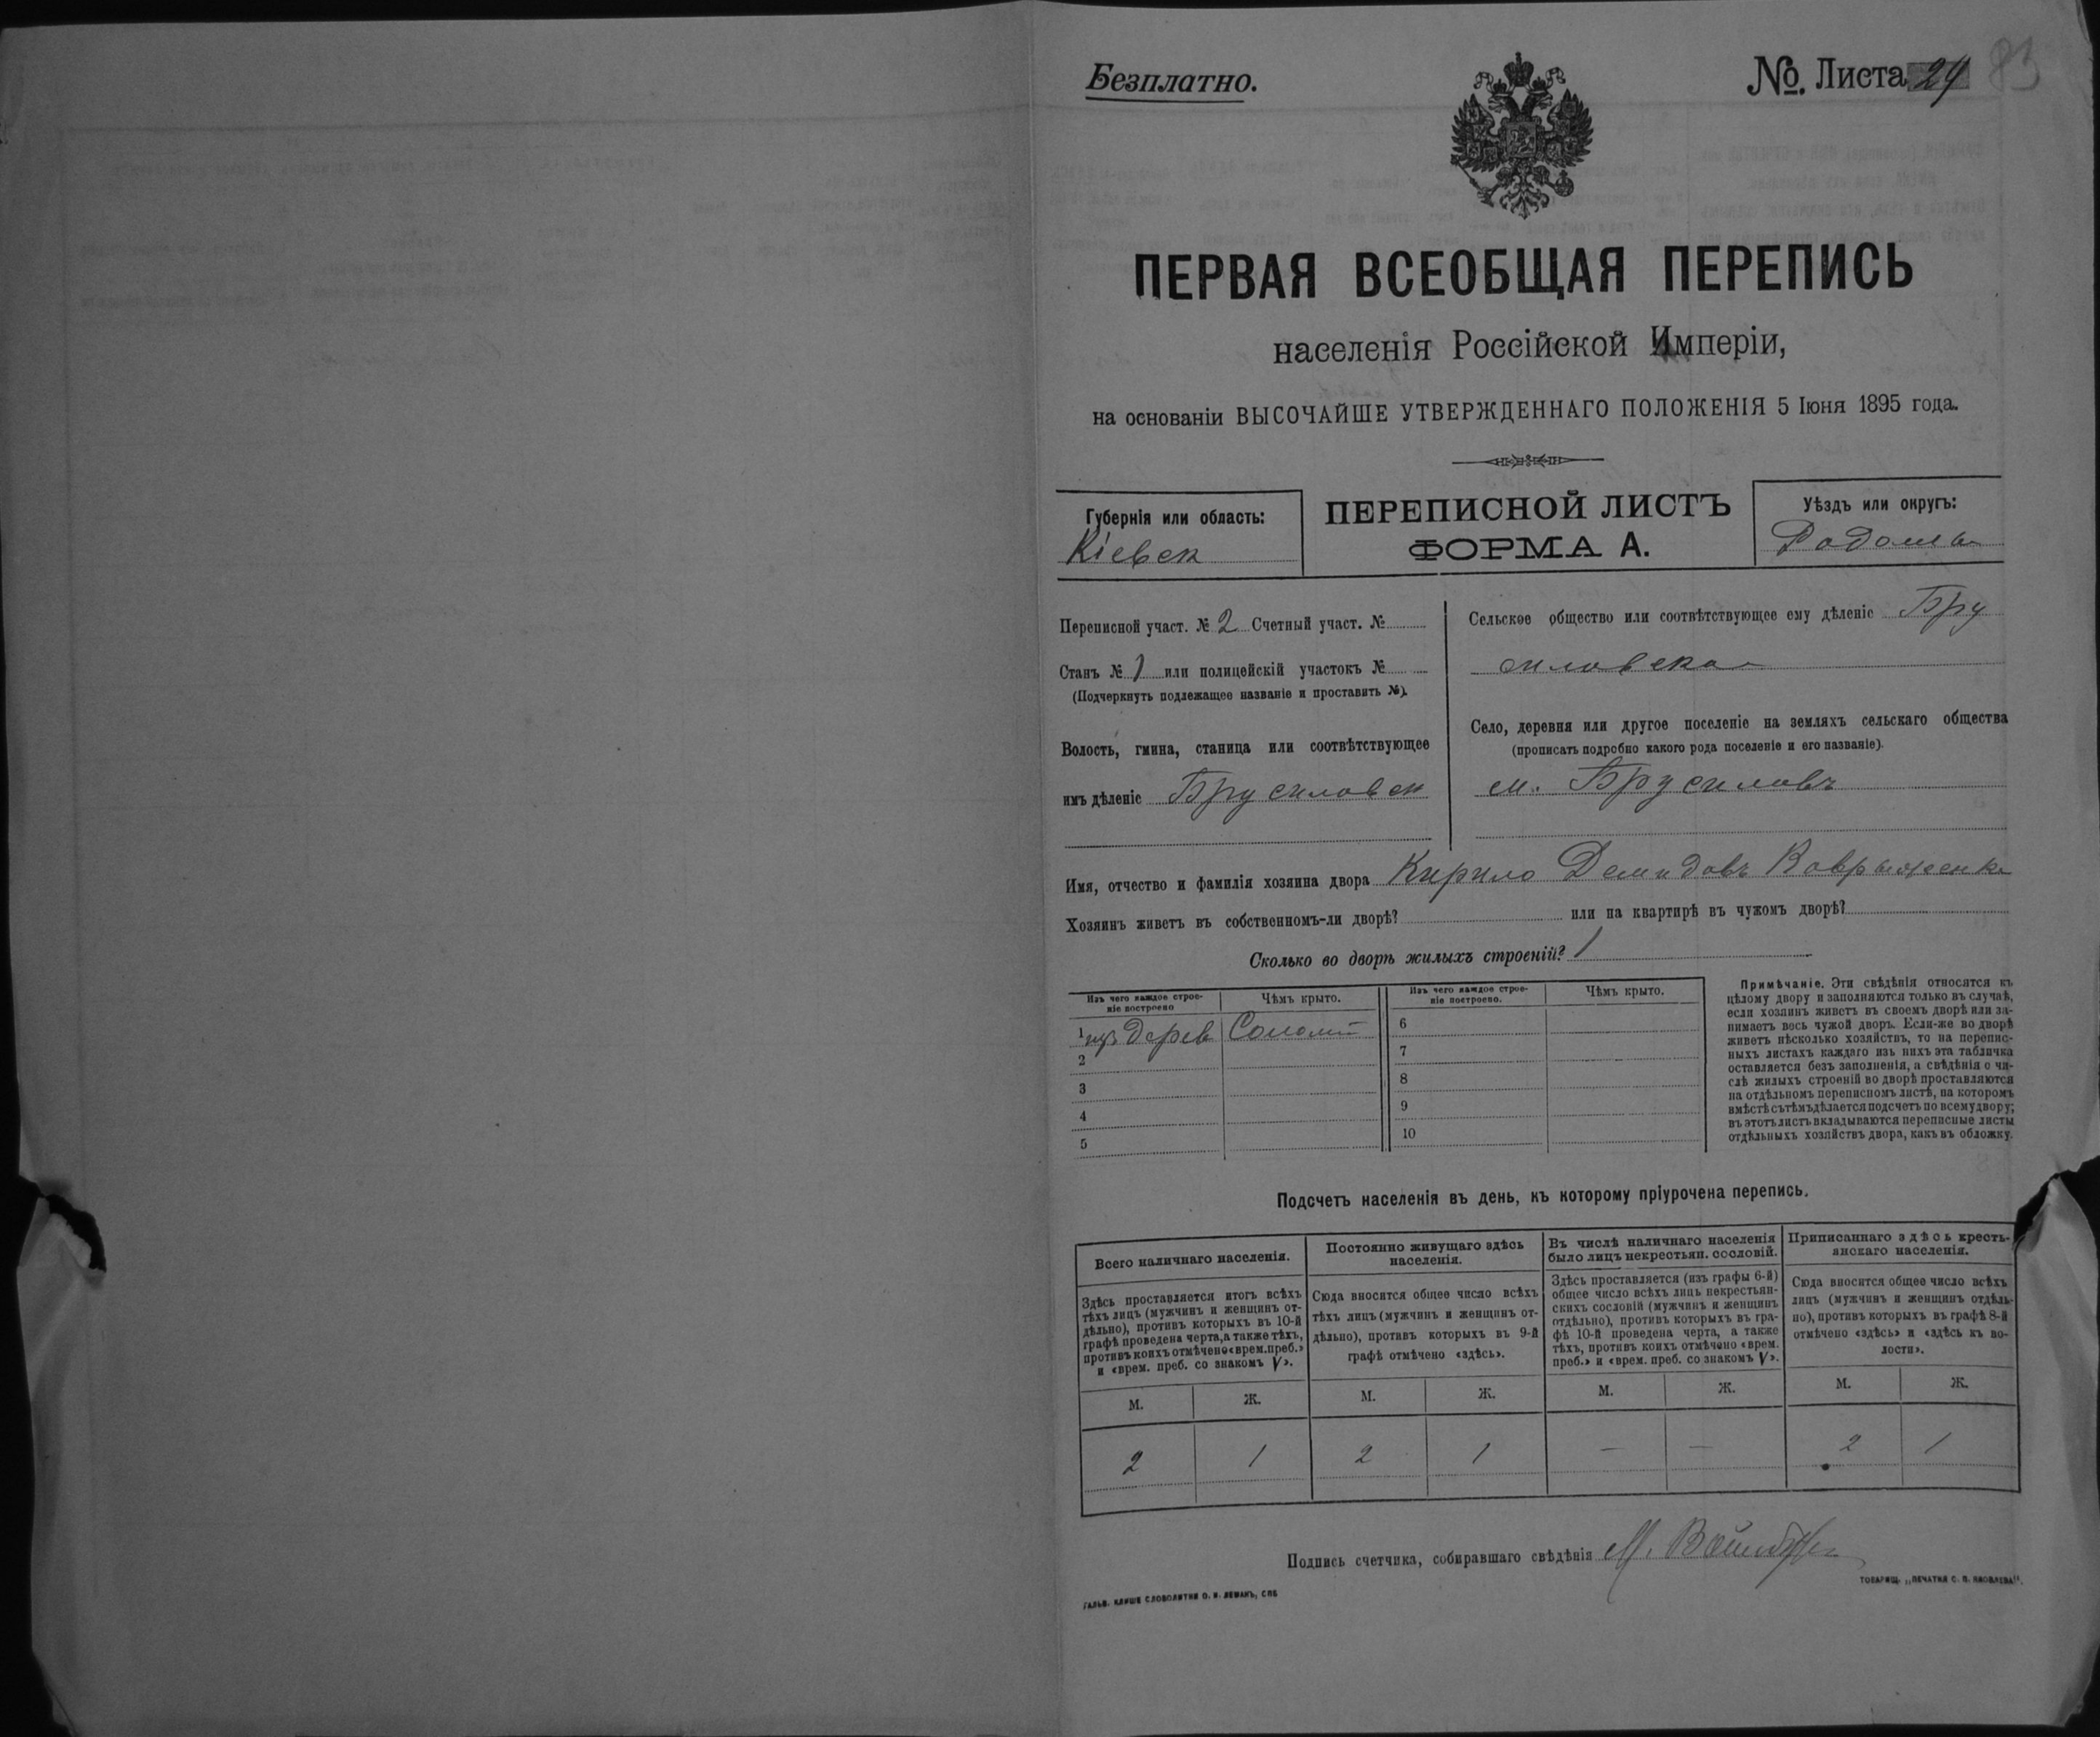 Безплатно.
№. Листа 24
83
ПЕРВАЯ ВСЕОБЩАЯ ПЕРЕПИСЬ
населенія Россійской Имперіи,
на основаніи ВЫСОЧАЙШЕ УТВЕРЖДЕННАГО ПОЛОЖЕНІЯ 5 Іюня 1895 года.
Губернія или область:
Кіевск
ПЕРЕПИСНОЙ ЛИСТЪ
ФОРМА А.
Уѣздъ или округъ:
Радомы
Переписной участ. № 2 Счетный участ. №
Станъ № 1 или полицейскій участокъ №
(Подчеркнуть подлежащее названіе и проставить №).
Волость, гмина, станица или соотвѣтствующее
имъ дѣленіе Брусиловск
Сельское общество или соотвѣтствующее ему дѣленіе Бру
силовское
Село, деревня или другое поселеніе на земляхъ сельскаго общества
(прописать подробно какого рода поселеніе и его названіе).
м. Брусиловъ
Имя, отчество и фамилія хозяина двора Кирило Демидовъ
Хозяинъ живетъ въ собственномъ-ли дворѣ? или на квартирѣ въ чужомъ дворѣ?
Сколько во дворѣ жилыхъ строеній? 1
Изъ чего каждое строе-
ніе построено
Чѣмъ крыто.
Изъ чего каждое строе-
ніе построено.
Чѣмъ крыто.
1 изъ дерев Солом
2
3
4
5
6
7
8
9
10
Примѣчаніе. Эти свѣдѣнія относятся къ
цѣлому двору и заполняются только въ случаѣ,
если хозяинъ живетъ въ своемъ дворѣ или за-
нимаетъ весь чужой дворъ. Если-же во дворѣ
живетъ нѣсколько хозяйствъ, то на перепис-
ныхъ листахъ каждаго изъ нихъ эта табличка
оставляется безъ заполненія, а свѣдѣнія о чи-
слѣ жилыхъ строеній во дворѣ проставляются
на отдѣльномъ переписномъ листѣ, на которомъ
вмѣстѣ съ тѣмъ дѣлается подсчетъ по всему двору;
въ этотъ листъ вкладываются переписные листы
отдѣльныхъ хозяйствъ двора, какъ въ обложку.
Подсчетъ населенія въ день, къ которому пріурочена перепись.
Всего наличнаго населенія.
Здѣсь проставляется итогъ всѣхъ
тѣхъ лицъ (мужчинъ и женщинъ от-
дѣльно), противъ которыхъ въ 10-й
графѣ проведена черта, а также тѣхъ,
противъ коихъ отмѣчено «врем. преб.»
и «врем. преб. со знакомъ V».
Постоянно живущаго здѣсь
населенія.
Сюда вносится общее число всѣхъ
тѣхъ лицъ (мужчинъ и женщинъ от-
дѣльно), противъ которыхъ въ 9-й
графѣ отмѣчено «здѣсь».
Въ числѣ наличнаго населенія
было лицъ некрестьян. сословій.
Здѣсь проставляется (изъ графы 6-й)
общее число всѣхъ лицъ некрестьян-
скихъ сословій (мужчинъ и женщинъ
отдѣльно), противъ которыхъ въ гра-
фѣ 10-й проведена черта, а также
тѣхъ, противъ коихъ отмѣчено «врем.
преб.» и «врем. преб. со знакомъ V».
Приписаннаго здѣсь кресть-
янскаго населенія.
Сюда вносится общее число всѣхъ
лицъ (мужчинъ и женщинъ отдѣль-
но), противъ которыхъ въ графѣ 8-й
отмѣчено «здѣсь» и «здѣсь къ во-
лости».
М. Ж. М. Ж. М. Ж. М. Ж.
2 1 2 1 — — 2 1
Подпись счетчика, собиравшаго свѣдѣнія М.
ГАЛЬВ. КЛИШЕ СЛОВОЛИТНИ О. И. ЛЕМАНЪ, СПБ
ТОВАРИЩ. „ПЕЧАТНЯ С. П. ЯКОВЛЕВА".